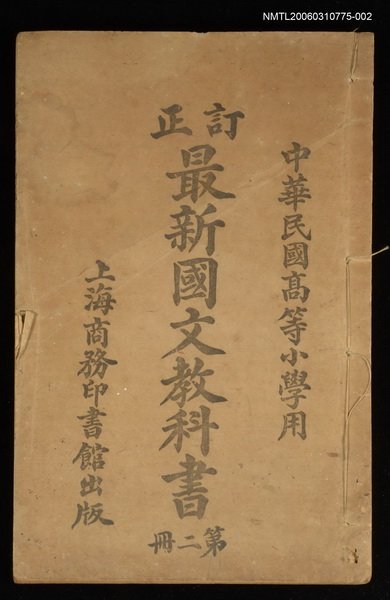 NMTL20060310775-002
中華民國高等小學用
訂正
最新國文教科書
第二冊
上海商務印書館出版